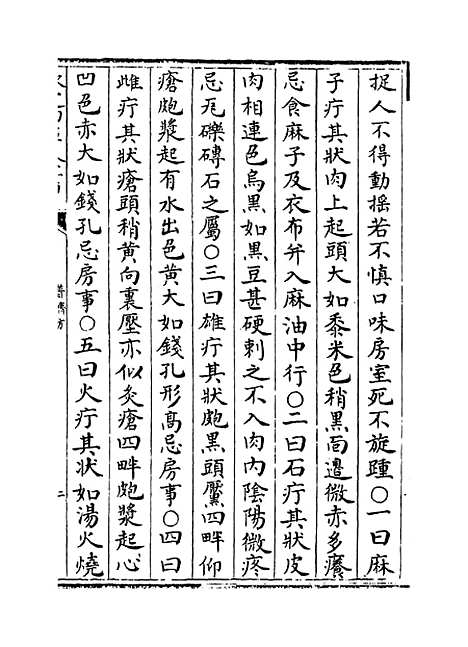 捉人不得動揺若不慎口味房室死不旋踵〇一曰麻
子疔其狀肉上起頭大如黍米色稍黑四邉微赤多癢
忌食麻子及衣布并入麻油中行〇二曰石疔其狀皮
肉相連色烏黑如黒豆甚硬刺之不入肉内陰陽微疼
忌瓦礫磚石之屬〇三曰雄疔其狀皰黒頭黶四畔仰
瘡皰漿起有水出色黄大如錢孔形髙忌房事〇四曰
雌疔其狀瘡頭稍黄向裏壓亦似灸瘡四畔皰漿起心
凹色赤大如錢孔忌房事〇五曰火疔其狀如湯火燒
普濟方
二